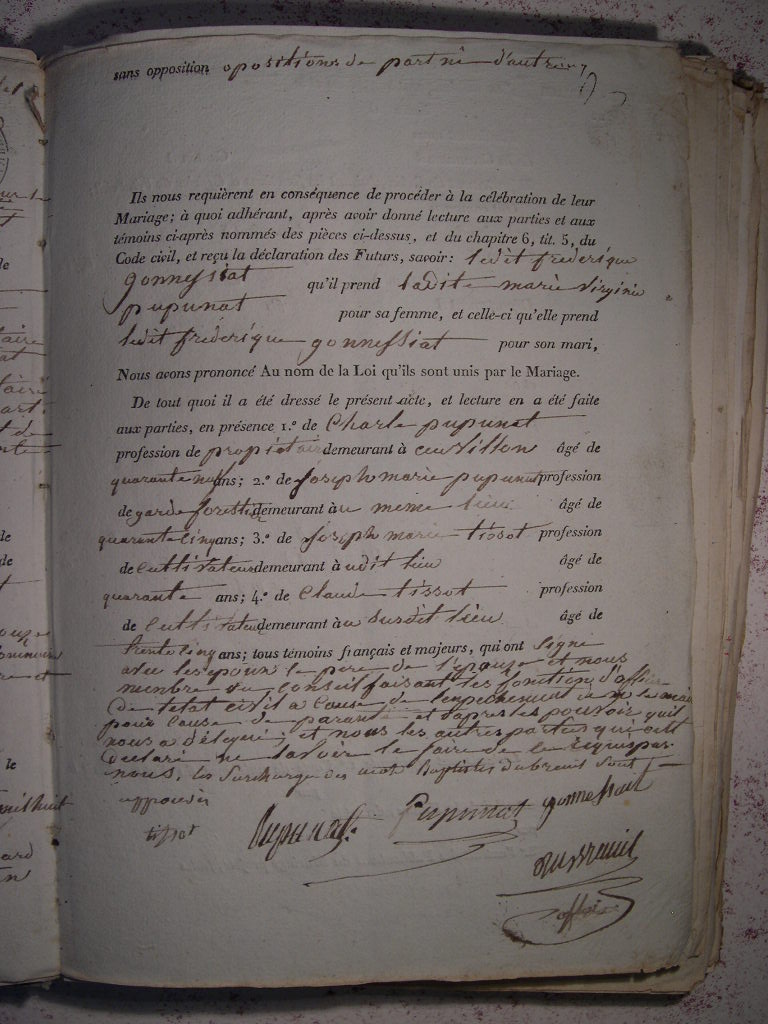 sans opposition opositions de part nî d'autre
Ils nous requièrent en conséquence de procéder à la célébration de leur
Mariage; à quoi adhérant, après avoir donné lecture aux parties et aux
témoins ci-après nommés des pièces ci-dessus, et du chapitre 6, tit. 5, du
Code civil, et reçu la déclaration des Futurs, savoir: ledit frederique
gonnessiat qu'il prend ladite marie virginie
pupunat pour sa femme, et celle-ci qu'elle prend
ledit frederique gonnessiat pour son mari,
Nous avons prononcé Au nom de la Loi qu'ils sont unis par le Mariage.
De tout quoi il a été dressé le présent acte, et lecture en a été faite
aux parties, en présence 1.º de Charle pupunat
profession de propiétair demeurant à cuvillon âgé de
quarante neuf ans; 2.º de Joseph marie pupunat profession
de garde forestier demeurant à u meme lieu âgé de
quarante cinq ans; 3.º de Joseph marie tissot profession
de Cultivateur demeurant à udit lieu âgé de
quarante ans; 4.º de Claude tissot profession
de Cultivateur demeurant à u susdit lieu âgé de
trente cinq ans; tous témoins français et majeurs, qui ont signé
avec les époux le pere de l'épouse et nous
membre du Conseil faisant les fonction d'officier
De l'état civil a Cause de l'empechement de mr le maire
pour Cause de paranté et d'apres les pouvoir quil
nous a délégué; et nous les autres parties qui ont
Déclaré ne savoir le faire de ce requis par
nous, les Surcharge des mot Baptiste dubreuil sont
approuvés
tissot pupunat pupunat gonnessiat
dubreuil